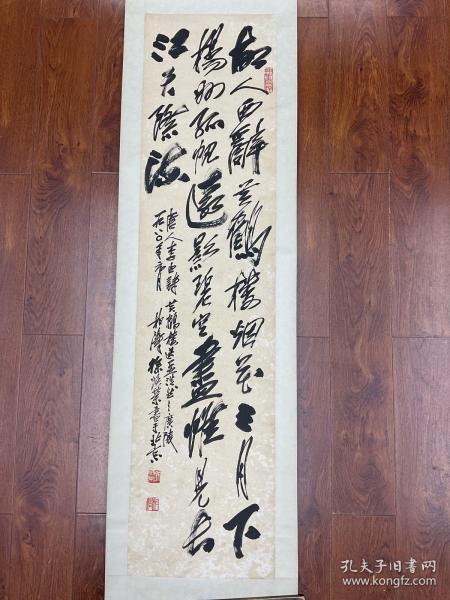 故人西辭黄鶴樓烟花三月下
揚州孤帆遠影碧空盡惟見長
江天際流
唐人李白詩黄鶴樓送孟浩然之廣陵
徐
書于北京
孔夫子旧书网
www.kongfz.com